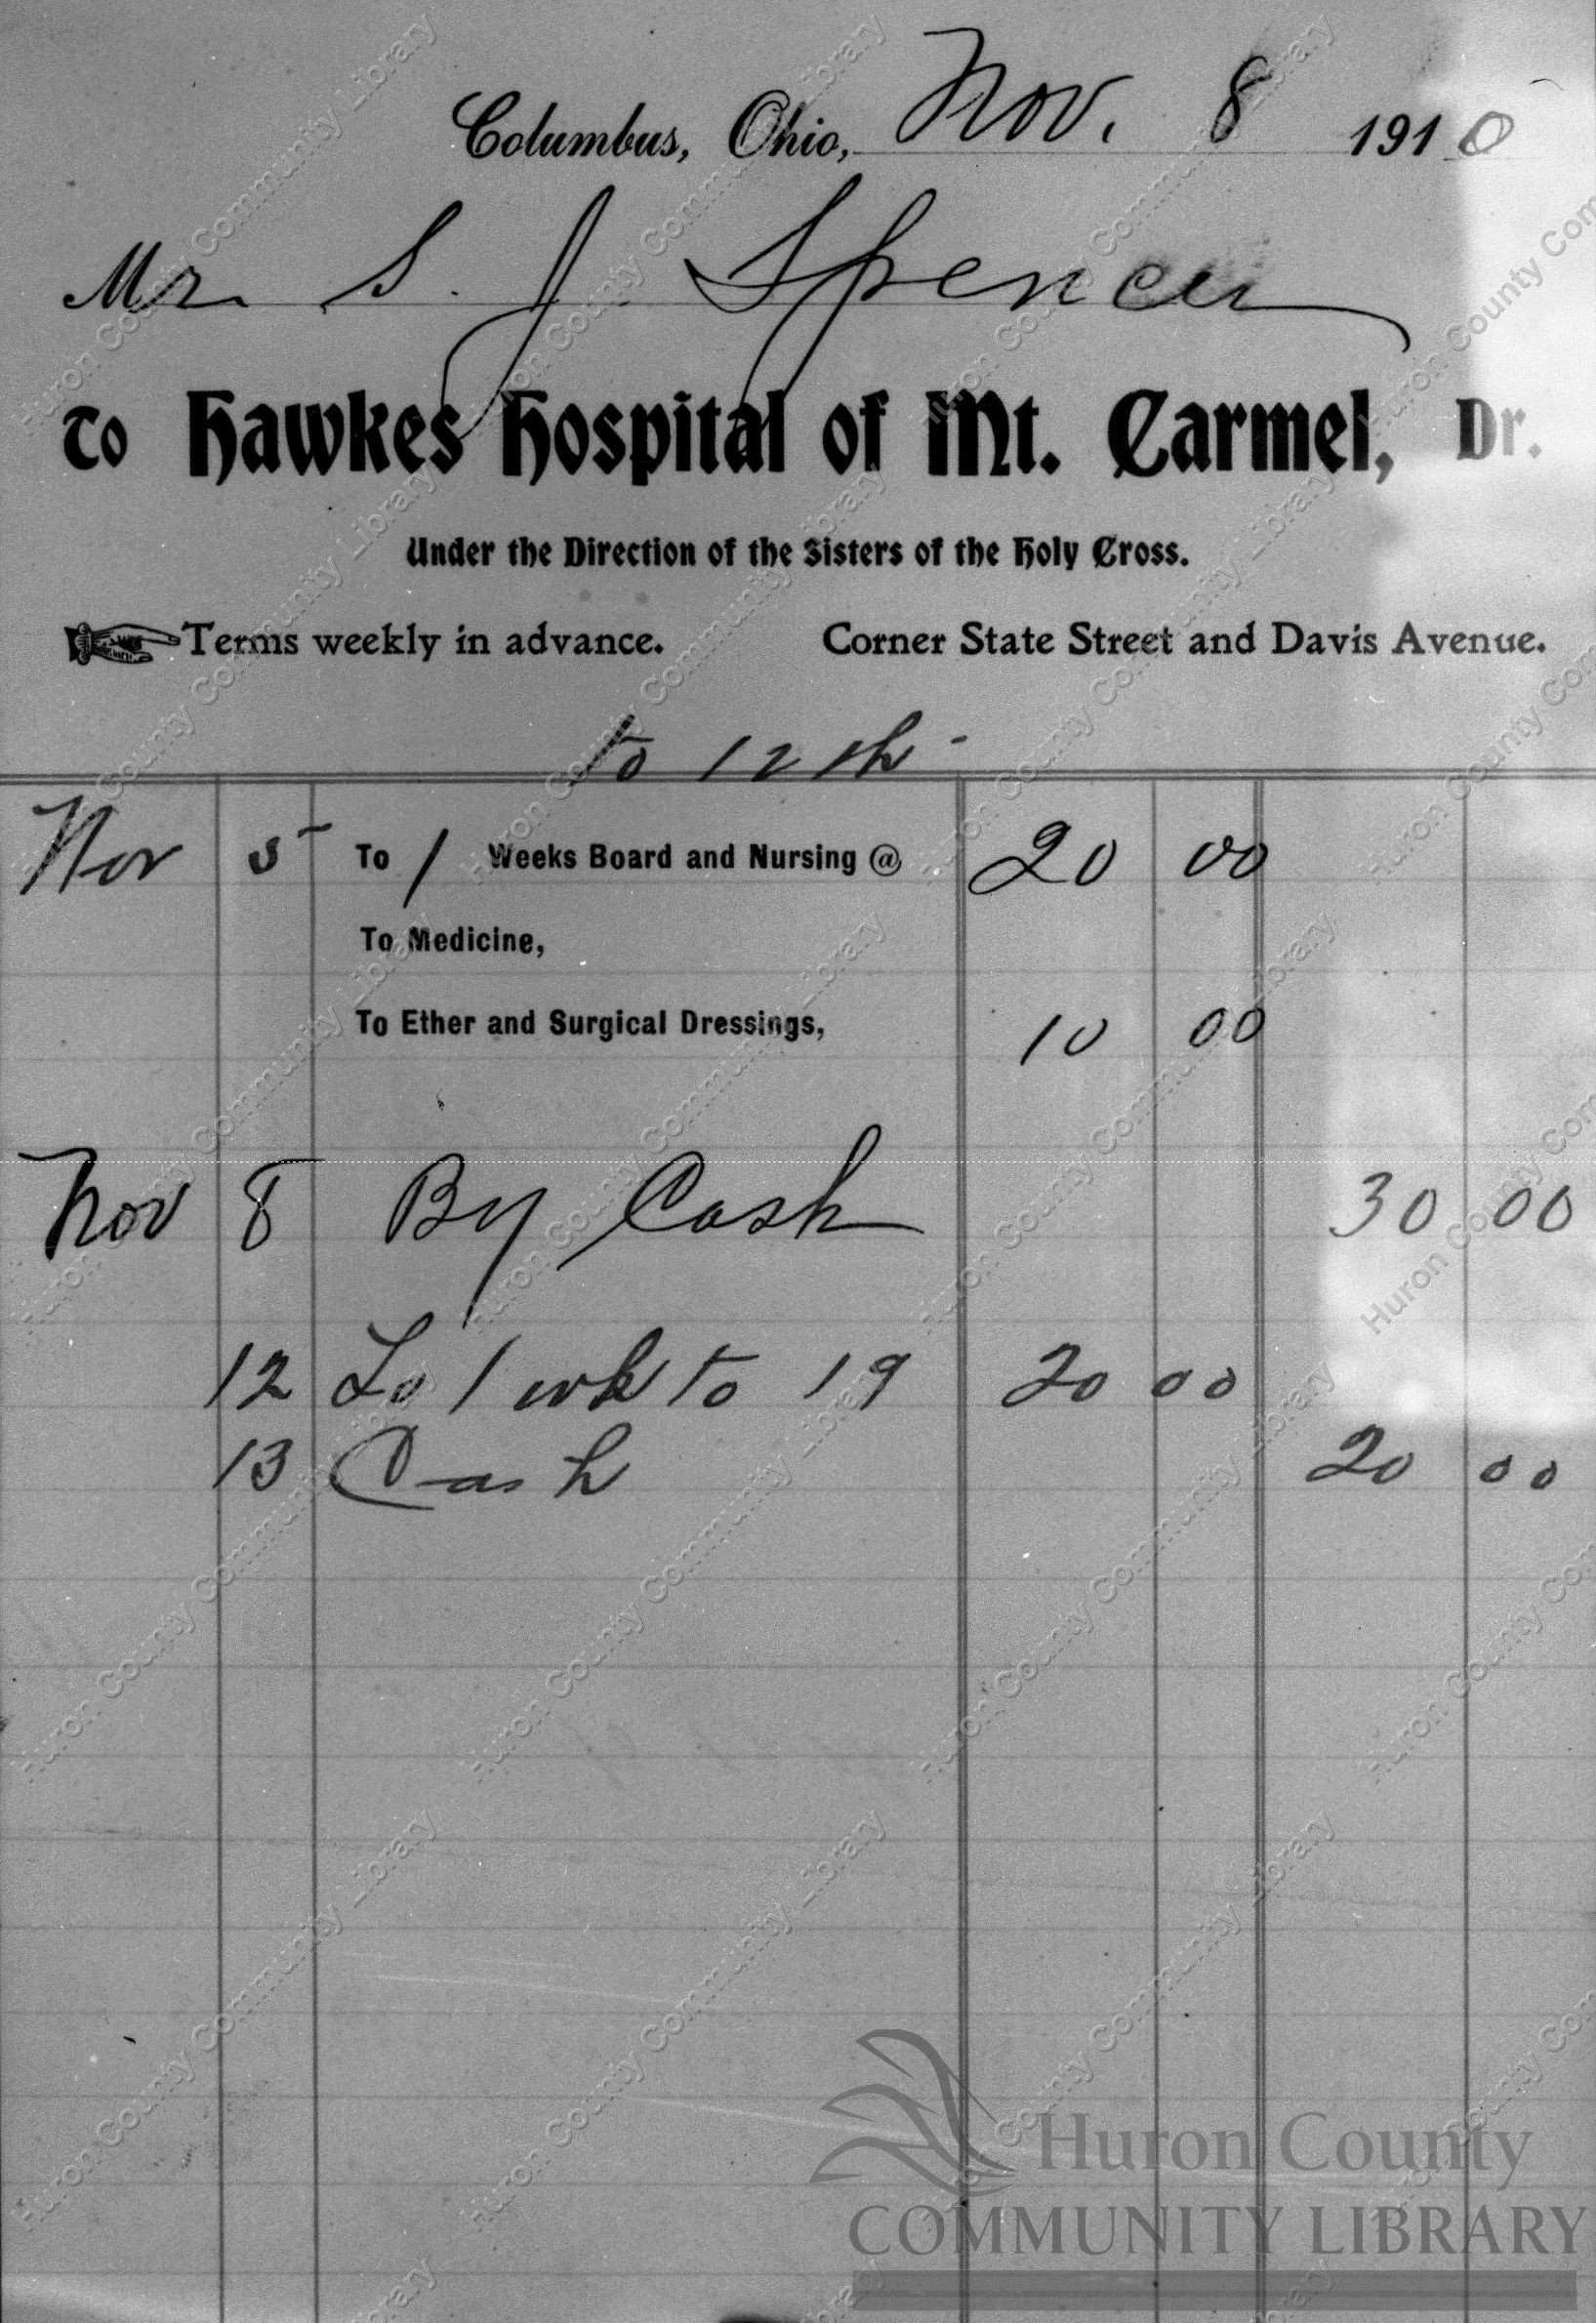 Columbus, Ohio, Nov. 8 1910
Mr. S. J. Spencer
To Hawkes Hospital of Mt. Carmel, Dr.
Under the Direction of the Sisters of the Holy Cross.
Terms weekly in advance. Corner State Street and Davis Avenue.
to 12th -
Nov 5 To 1 Weeks Board and Nursing @ 20 00
To Medicine,
To Ether and Surgical Dressings, 10 00
Nov 8 By Cash 30 00
12 To 1 wk to 19 20 00
13 Cash 20 00
Huron County
COMMUNITY LIBRARY